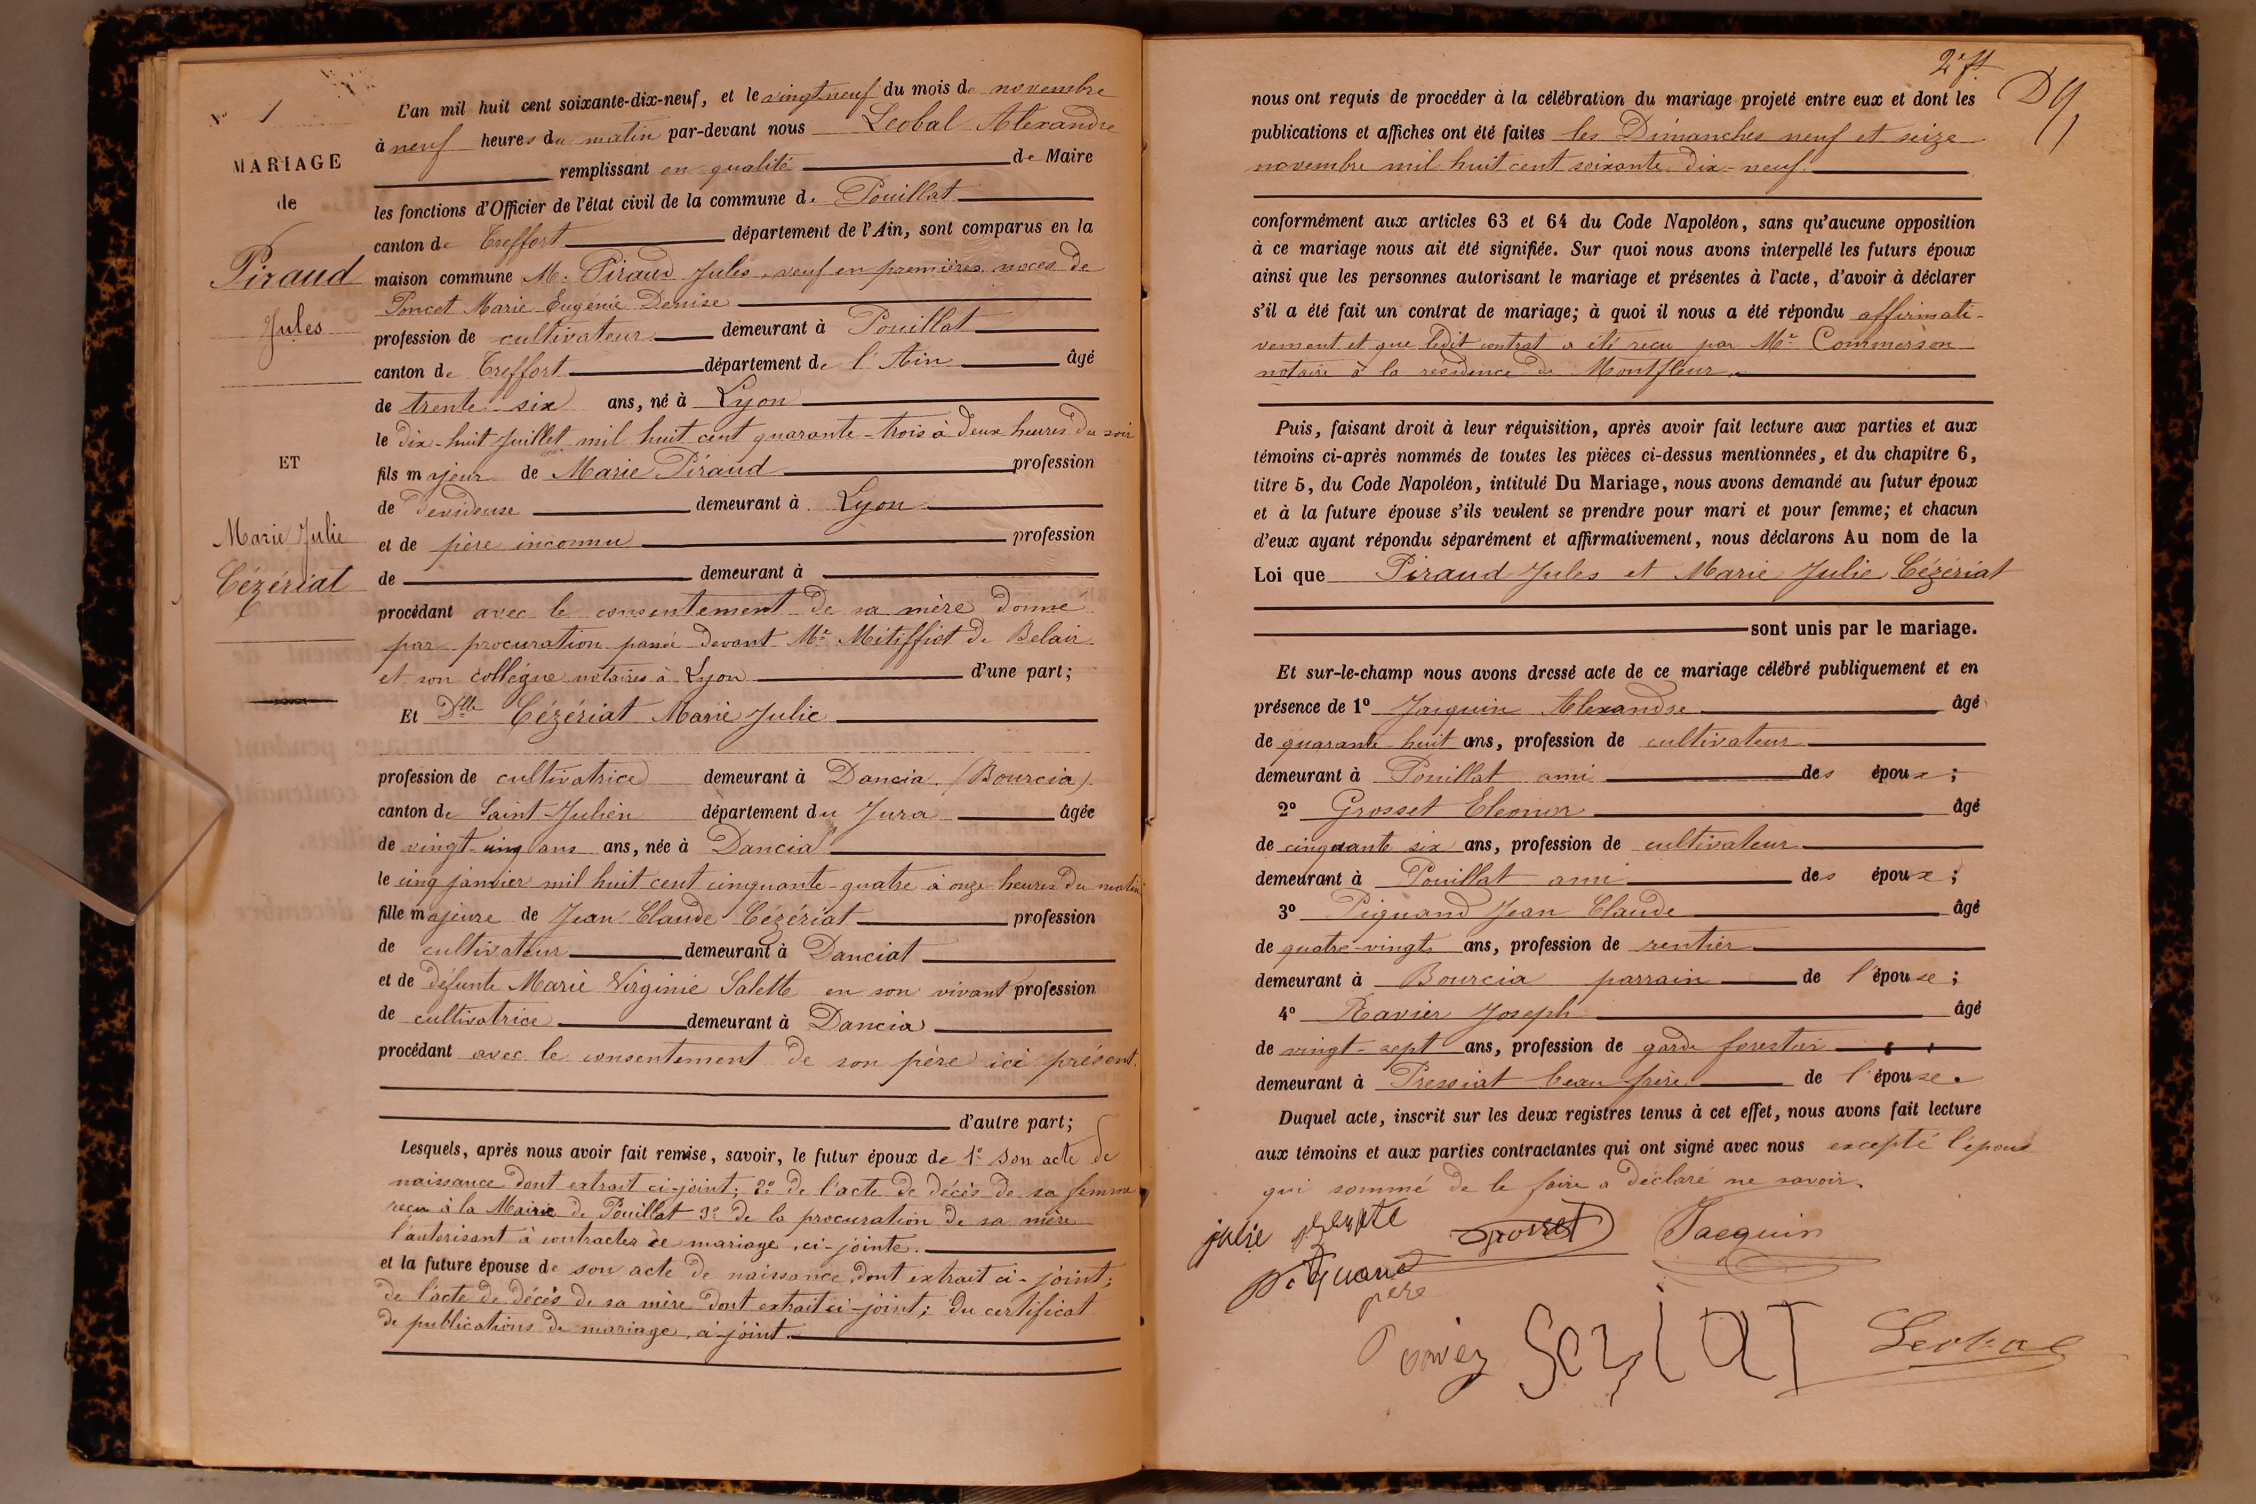 N° 1
MARIAGE
de
Piraud
Jules
ET
Marie Julie
Cézériat
L'an mil huit cent soixante-dix-neuf, et le vingt neuf du mois de novembre
à neuf heures du matin par-devant nous Leobal Alexandre
remplissant en qualité de Maire
les fonctions d'Officier de l'état civil de la commune de Pouillat
canton de Treffort département de l'Ain, sont comparus en la
maison commune M. Piraud Jules, veuf en premières noces de
Poncet Marie Eugénie Denise
profession de cultivateur demeurant à Pouillat
canton de Treffort département de l'Ain âgé
de trente-six ans, né à Lyon
le dix-huit Juillet mil huit cent quarante-trois à deux heures du soir
fils majeur de Marie Piraud profession
de dévideuse demeurant à Lyon
et de père inconnu profession
de demeurant à
procédant avec le consentement de sa mère donné
par procuration passé devant Me Mitiffiot de Belair
et son collègue notaires à Lyon d'une part;
Et Dlle Cézériat Marie Julie
profession de cultivatrice demeurant à Dancia (Bourcia)
canton de Saint-Julien département du Jura âgée
de vingt-cinq ans ans, née à Dancia
le cinq janvier mil huit cent cinquante-quatre à onze heures du matin
fille majeure de Jean Claude Cézériat profession
de cultivateur demeurant à Danciat
et de défunte Marie Virginie Salette en son vivant profession
de cultivatrice demeurant à Dancia
procédant avec le consentement de son père ici présent.
d'autre part;
Lesquels, après nous avoir fait remise, savoir, le futur époux de 1° son acte de
naissance dont extrait ci-joint; 2° de l'acte de décès de sa femme
reçu à la Mairie de Pouillat 3° de la procuration de sa mère
l'autorisant à contracter ce mariage, ci-jointe.
et la future épouse de son acte de naissance dont extrait ci-joint;
de l'acte de décès de sa mère dont extrait ci-joint; du certificat
de publications de mariage, ci-joint.
2e ft
nous ont requis de procéder à la célébration du mariage projeté entre eux et dont les
publications et affiches ont été faites les Dimanches neuf et seize
novembre mil huit cent soixante-dix-neuf.
conformément aux articles 63 et 64 du Code Napoléon, sans qu'aucune opposition
à ce mariage nous ait été signifiée. Sur quoi nous avons interpellé les futurs époux
ainsi que les personnes autorisant le mariage et présentes à l'acte, d'avoir à déclarer
s'il a été fait un contrat de mariage; à quoi il nous a été répondu affirmati-
vement et que ledit contrat a été reçu par Me Commerson
notaire à la résidence de Montfleur.
Puis, faisant droit à leur réquisition, après avoir fait lecture aux parties et aux
témoins ci-après nommés de toutes les pièces ci-dessus mentionnées, et du chapitre 6,
titre 5, du Code Napoléon, intitulé Du Mariage, nous avons demandé au futur époux
et à la future épouse s'ils veulent se prendre pour mari et pour femme; et chacun
d'eux ayant répondu séparément et affirmativement, nous déclarons Au nom de la
Loi que Piraud Jules et Marie Julie Cézériat
sont unis par le mariage.
Et sur-le-champ nous avons dressé acte de ce mariage célébré publiquement et en
présence de 1° Jacquin Alexandre âgé
de quarante-huit ans, profession de cultivateur
demeurant à Pouillat ami des époux;
2° Grosset Eléonor âgé
de cinquante six ans, profession de cultivateur
demeurant à Pouillat ami des époux;
3° Piguand Jean Claude âgé
de quatre-vingts ans, profession de rentier
demeurant à Bourcia parrain de l'épouse;
4° Ravier Joseph âgé
de vingt-sept ans, profession de garde forestier
demeurant à Pressiat beau frère de l'épouse.
Duquel acte, inscrit sur les deux registres tenus à cet effet, nous avons fait lecture
aux témoins et aux parties contractantes qui ont signé avec nous excepté l'époux
qui sommé de le faire a déclaré ne savoir.
julie
Grosset
Jacquin
piguand
pere
Leobal